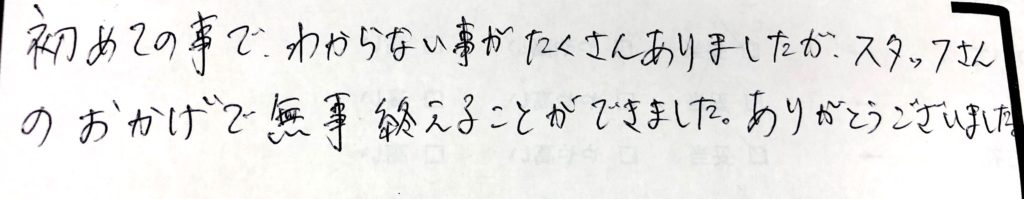 初めての事で、わからない事がたくさんありましたが、スタッフさん
のおかげで無事終えることができました。ありがとうございました